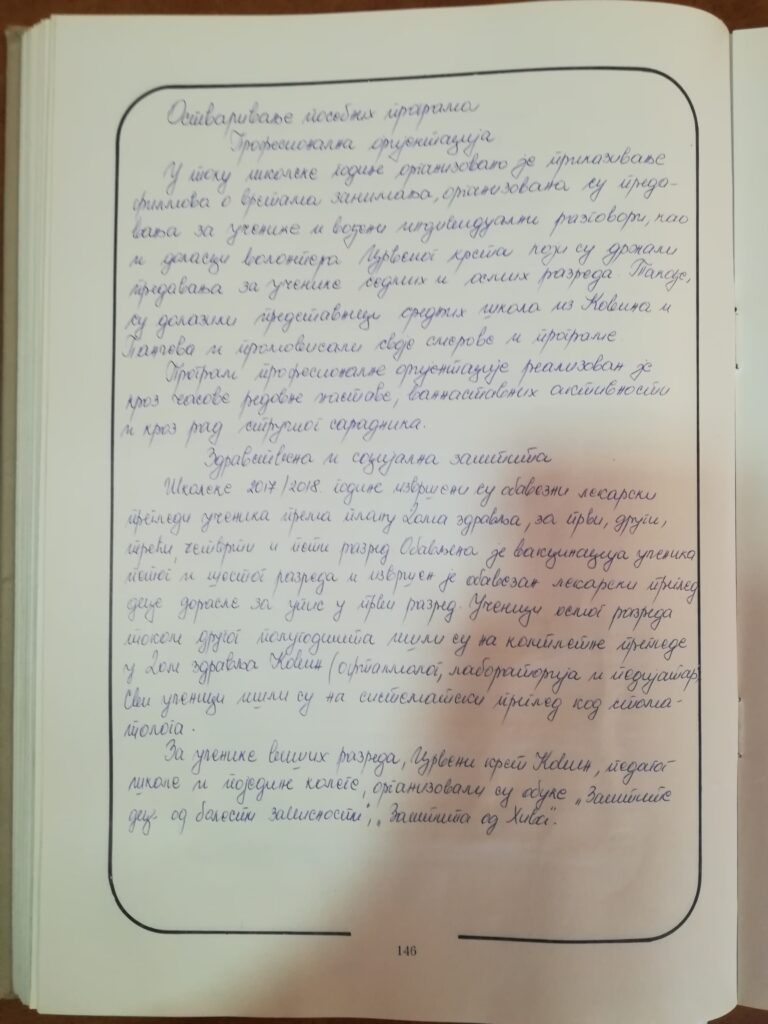 Остваривање посебних програма
Професионална оријентација
У току школске године организовано је приказивање
филмова о врстама занимања, организована су преда-
вања за ученике и вођени индивидуални разговори, као
и доласци волонтера Црвеног крста који су држали
предавања за ученике седмих и осмих разреда. Такође,
су долазили представници средњих школа из Ковина и
Панчева и промовисали своје смерове и програме.
Програм професионалне оријентације реализован је
кроз часове редовне наставе, ваннаставних активности
и кроз рад стручног сарадника.
Здравствена и социјална заштита
Школске 2017/2018. године извршени су обавезни лекарски
прегледи ученика према плану Дома здравља, за први, други,
трећи, четврти и пети разред. Обављена је вакцинација ученика
петог и шестог разреда и извршен је обавезан лекарски преглед
деце дорасле за упис у први разред. Ученици осмог разреда
током другог полугодишта ишли су на комплетне прегледе
у Дом здравља Ковин (офталмолог, лабораторија и педијатар)
Сви ученици ишли су на систематски преглед код стома-
толога.
За ученике виших разреда, Црвени крст Ковин, педагог
школе и поједине колеге, организовали су обуке „Заштите
деце од болести зависности", „Заштита од Хива".
146